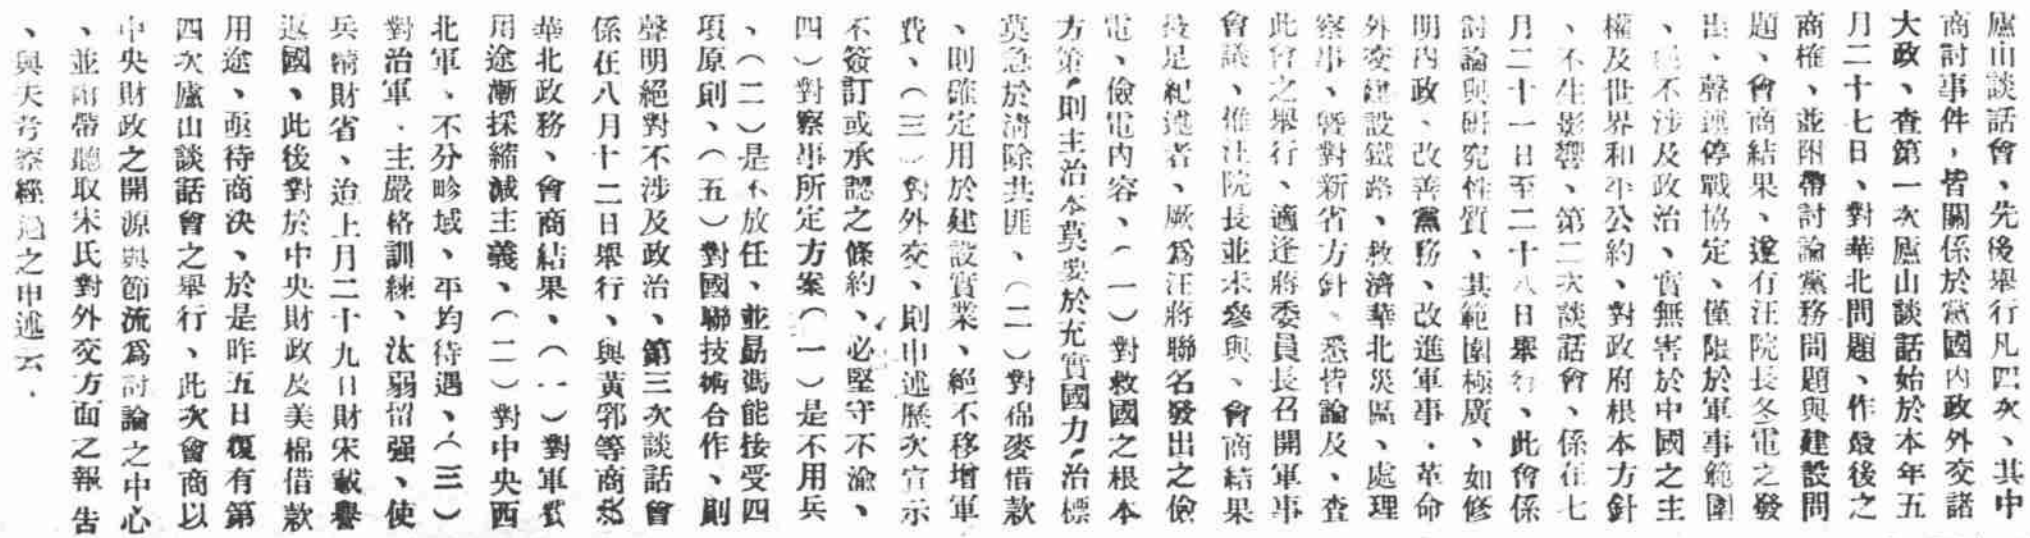 廬山談話會、先後舉行凡四次、其中
商討事件，皆關係於黨國內政外交諸
大政、查第一次廬山談話始於本年五
月二十七日、對華北問題、作最後之
商榷、並附帶討論黨務問題與建設問
題、會商結果、遂有汪院長冬電之發
出、聲述停戰協定、僅限於軍事範圍
、不涉及政治、實無害於中國之主
權及世界和平公約、對政府根本方針
、不生影響、第二次談話會、係在七
月二十一日至二十八日舉行、此會係
討論與研究性質、其範圍極廣、如修
明內政、改善黨務、改進軍事．革命
外交建設鐵路、救濟華北災區、處理
察事、曁對新省方針、悉皆論及、查
此會之舉行、適逢蔣委員長召開軍事
會議、惟汪院長並未參與、會商結果
足紀述者、厥爲汪蔣聯名發出之儉
電、儉電內容、（一）對救國之根本
方策，則主治本莫要於充實國力，治標
莫急於淸除共匪、（二）對棉麥借款
、則確定用於建設實業、絕不移增軍
費、（三）對外交、則申述歷次宣示
不簽訂或承認之條約、必堅守不渝、
四）對察事所定方案（一）是不用兵
、（二）是不放任、並勗馮能接受四
項原則、（五）對國聯技術合作、則
聲明絕對不涉及政治、第三次談話會
係在八月十二日舉行、與黃郛等商
華北政務、會商結果、（一）對軍費
用途漸採縮減主義、（二）對中央西
北軍、不分畛域、平均待遇、（三）
對治軍．主嚴格訓練、汰弱留强、使
兵精財省、迨上月二十九日財宋載譽
返國、此後對於中央財政及美棉借款
用途、亟待商决、於是昨五日復有第
四次廬山談話會之舉行、此次會商以
中央財政之開源與節流爲討論之中心
、並附帶聽取宋氏對外交方面之報告
、與夫考察經過之申述云．